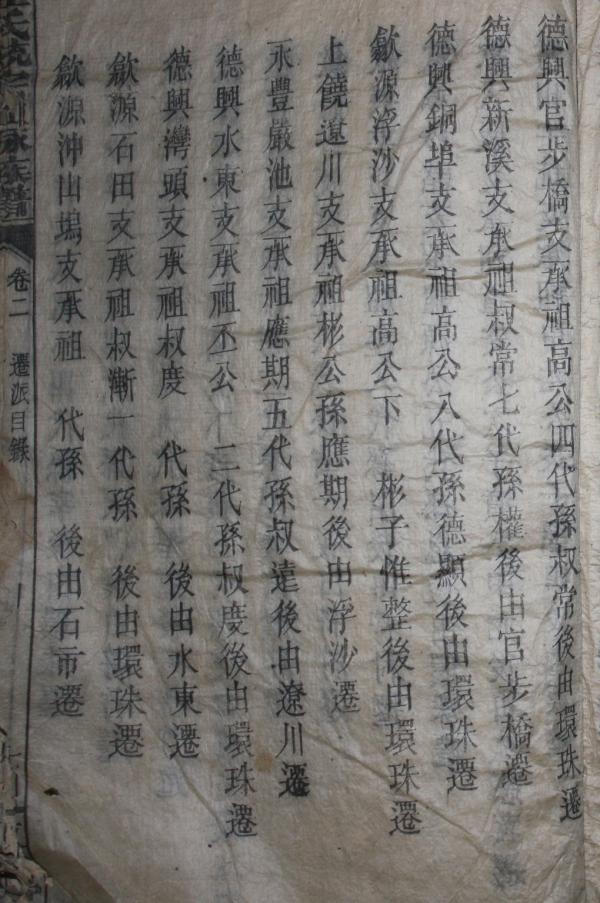 德興官步橋支承祖高公四代孫叔常後由環珠遷
德興新溪支承祖叔常七代孫權後由官步橋遷
德興銅埠支承祖高公八代孫德顯後由環珠遷
歙源浮沙支承祖高公下 彬子惟整後由環珠遷
上饒遼川支承祖彬公孫應期後由浮沙遷
永豐嚴池支承祖應期五代孫叔遠後由遼川遷
德興水東支承祖丕公 二代孫叔度後由環珠遷
德興灣頭支承祖叔度 代孫 後由水東遷
歙源石田支承祖叔漸一代孫 後由環珠遷
歙源沖山塢支承祖 代孫 後由石市遷
氏統宗 族譜
卷二 遷派目錄